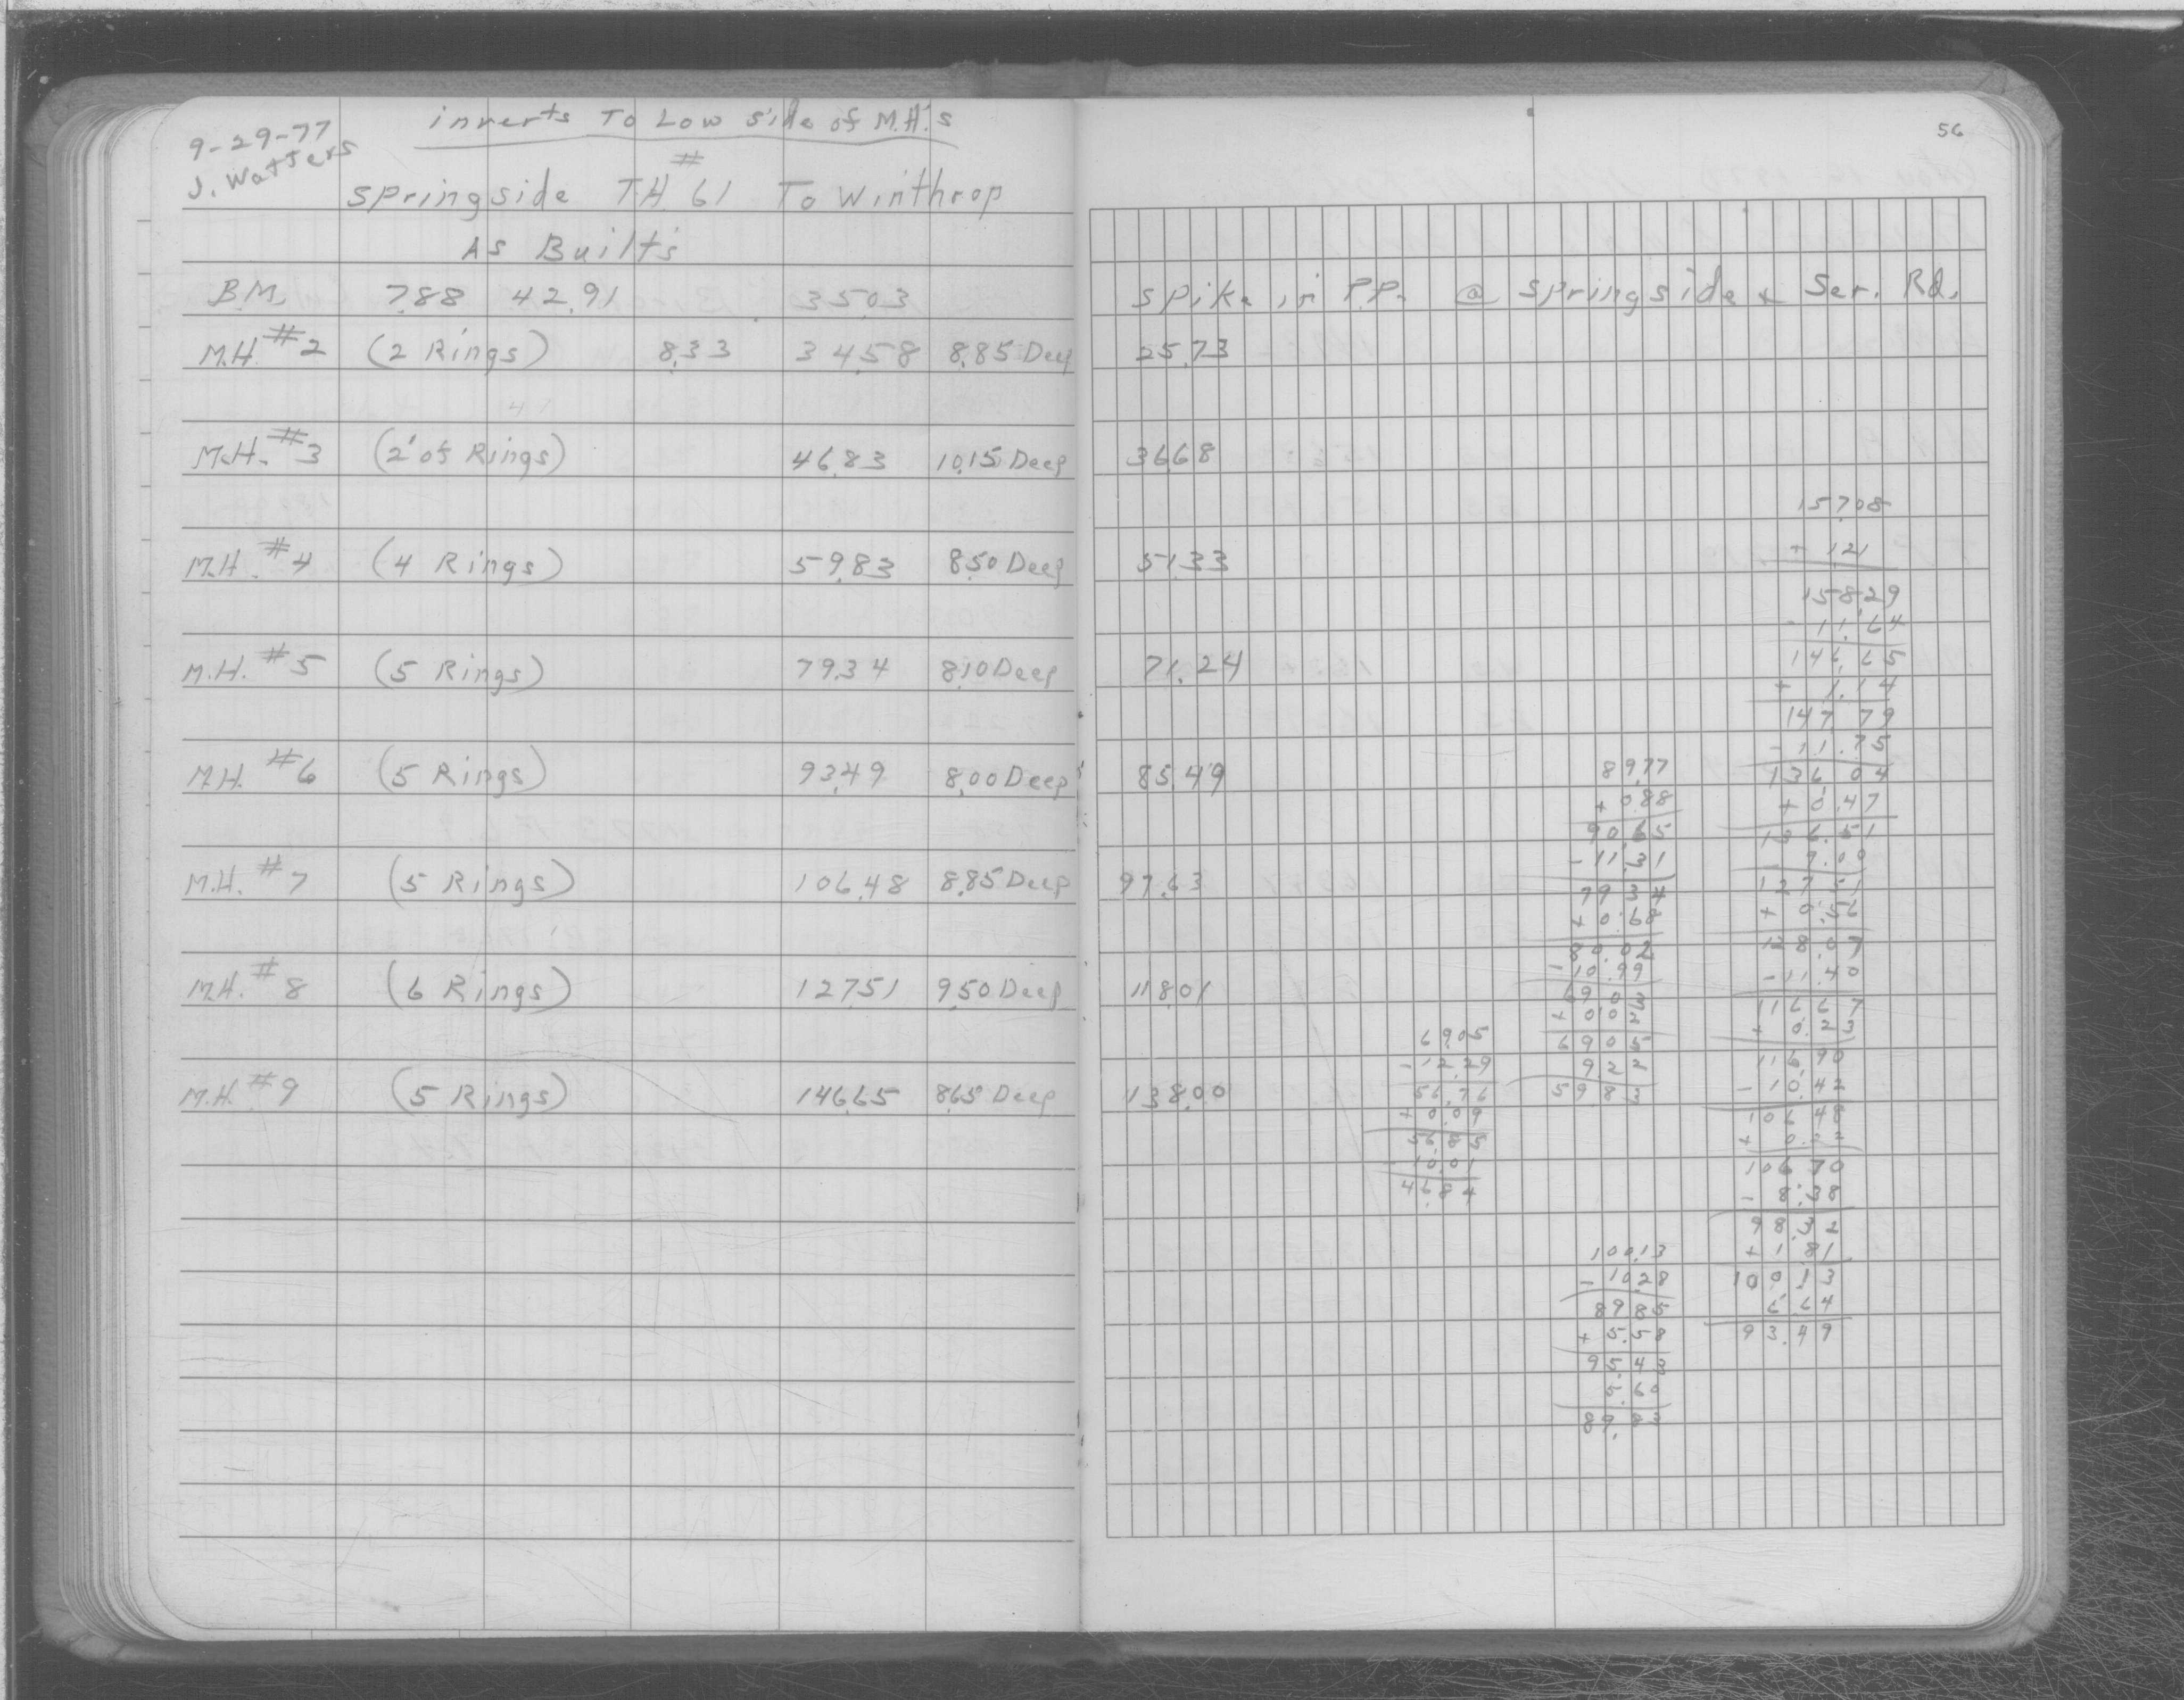 9-29-77
J. Watters
inverts To Low side of M.H.'s
Springside T.H.#61 To Winthrop
As Built's
B.M. 7.88 42.91 35.03
M.H. #2 (2 Rings) 8.33 34.58 8.85 Deep
M.H. #3 (2' of Rings) 46.83 10.15 Deep
M.H. #4 (4 Rings) 59.83 8.50 Deep
M.H. #5 (5 Rings) 79.34 8.10 Deep
M.H. #6 (5 Rings) 93.49 8.00 Deep
M.H. #7 (5 Rings) 106.48 8.85 Deep
M.H. #8 (6 Rings) 127.51 9.50 Deep
M.H. #9 (5 Rings) 146.65 8.65 Deep
56
Spike in P.P. @ Springside & Ser. Rd.
25.73
36.68
51.33
71.24
85.49
97.63
118.01
138.00
69.05
- 12.29
56.76
+ 0.09
56.85
10.01
46.84
89.77
+ 0.88
90.65
- 11.31
79.34
+ 0.68
80.02
- 10.99
69.03
+ 0.02
69.05
9.22
59.83
100.13
- 10.28
89.85
+ 5.58
95.43
5.60
89.83
157.08
+ 1.21
158.29
- 11.64
146.65
+ 1.14
147.79
- 11.75
136.04
+ 0.47
136.51
- 9.00
127.51
+ 0.56
128.07
- 11.40
116.67
+ 0.23
116.90
- 10.42
106.48
+ 0.22
106.70
- 8.38
98.32
+ 1.81
100.13
6.64
93.49